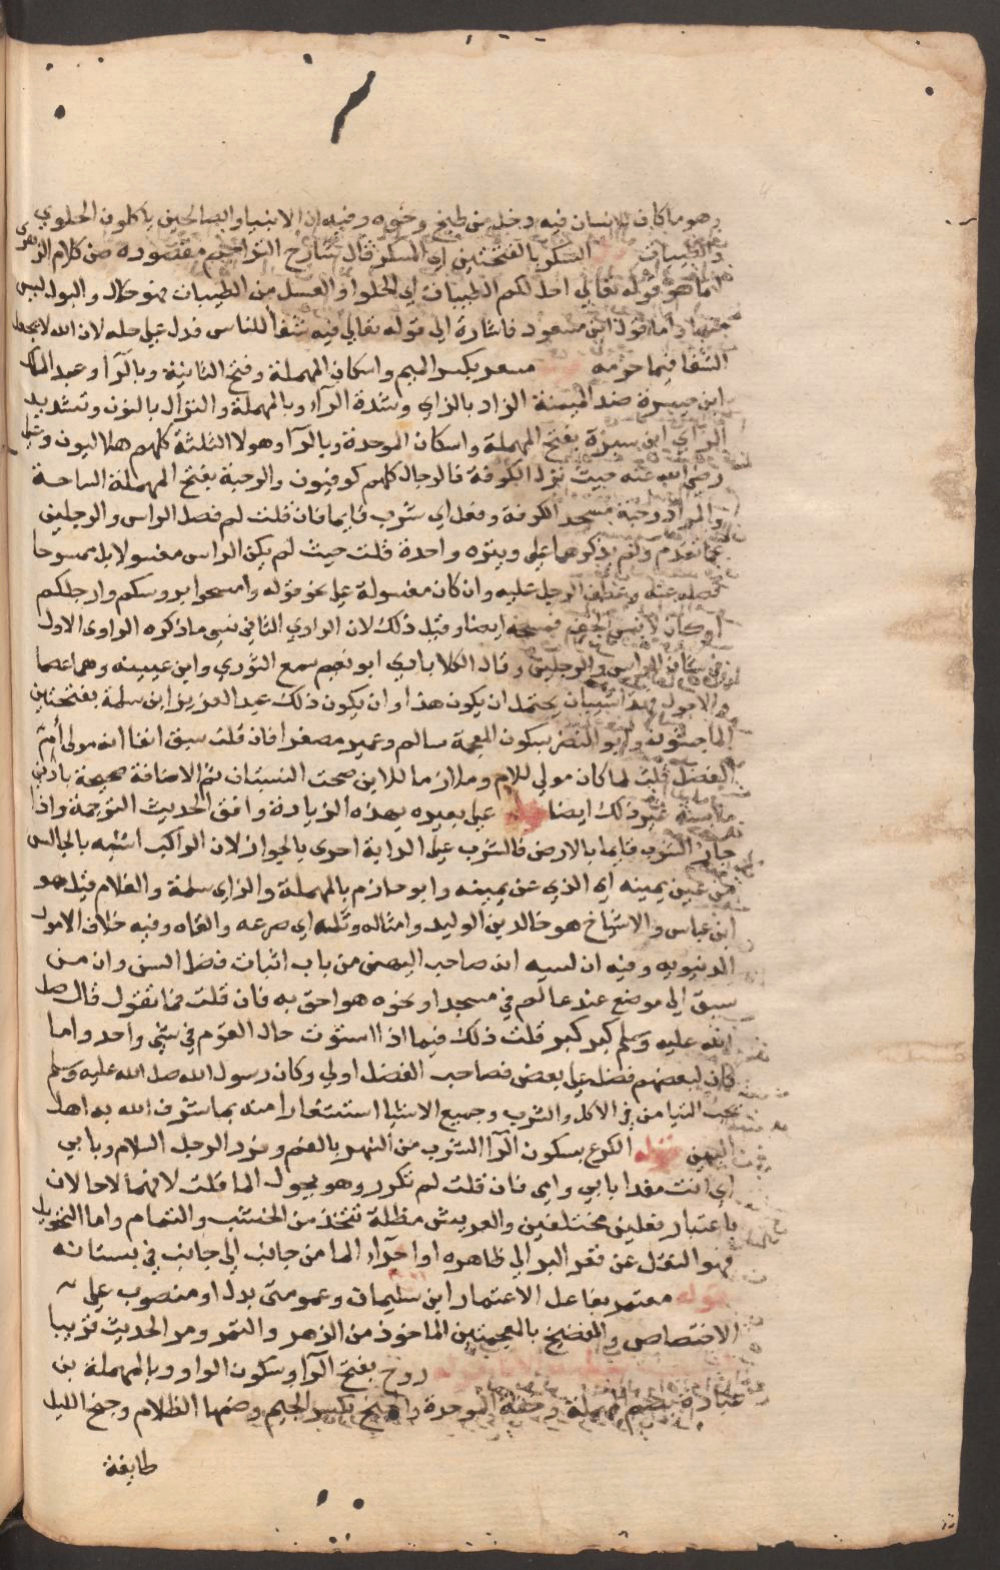 وهو ما كان للانسان فيه دخل من طبخ ونحوه وفيه ان الانبيا والصالحين ياكلون الحلوي
والطيبات السكر بالفتحتين اي المسكر قال شارح التراجم مقصوده من كلام الزهري
اما هو قوله تعالي احل لكم الطيبات اي الحلوا والعسل من الطيبات فهو حلال والبول ليس
منها واما قول ابن مسعود فاشارة الي قوله تعالي فيه شفا للناس فدل علي حله لان الله لا يجعل
الشفا فيما حرمه مسعر بكسر الميم واسكان المهملة وفتح الثانية وبالرا وعبد الملك
ابن ميسرة ضد الميمنة الزاد بالزاي وشدة الراء وبالمهملة والنزال بالنون وتشديد
الزاي ابن سبرة بفتح المهملة واسكان الموحدة وبالرا وهولا الثلثة كلهم هلاليون وعلي
رضي الله عنه حيث نزل الكوفة فالرجال كلهم كوفيون والرحبة بفتح المهملة الساحة
والمراد رحبة مسجد الكوفة وفعل اي شرب قايما فان قلت لم فصل الراس والرجلين
عما تقدم ولم يذكرهما علي وتيره واحدة قلت حيث لم يكن الراس مغسولا بل ممسوحا
فصله عنه وعطف الرجل عليه وان كان مغسولة علي نحو قوله وامسحوا بروسكم وارجلكم
او كان لابس الخف فمسحه ايضا وقيل ذلك لان الراوي الثاني نسي ما ذكره الراوي الاول
في شان الراس والرجلين وقال الكلاباذي ابو نعيم سمع الثوري وابن عيينه وهما عصما
والاحول فهذا سفيان يحتمل ان يكون هذا وان يكون ذلك عبد العزيز ابن سلمة بفتحتين
الماجشون وابو النضر بسكون المعجمة سالم وعمير مصغرا فان قلت سبق انفا انه مولي ام
الفضل قلت لما كان مولي للام وملازما للابن صحت النسبتان ثم الاضافة صحيحة بادني
ملابسة غير ذلك ايضا قوله علي بعيره بهذه الزيادة وافق الحديث الترجمة واذا
جاز الشرب قايما بالارض فالشرب علي الدابة احري بالجواز لان الراكب اشبه بالجالس
من عين يمينه اي الذي عن يمينه وابو حازم بالمهملة والزاي سلمة والغلام قيل هو
ابن عباس والاشياخ هو خالد بن الوليد وامثاله وتله اي صرعه والقاه وفيه خلاف الامور
الدنيويه وفيه ان لسيه ان صاحب اليمين من باب اثبات فضل السن وان من
سبق الي موضع عند عالم في مسجد او نحوه هو احق به فان قلت فما تقول قال صلي
الله عليه وسلم كبر كبر قلت ذلك فيما اذا استوت حال القوم في شي واحد واما
كان لبعضهم فضل علي بعض فصاحب الفضل اولي وكان رسول الله صلي الله عليه وسلم
يحب التيامن في الاكل والشرب وجميع الاشيا استشعارا منه بما شرف الله به اهل
اليمين قوله الكرع بسكون الرا الشرب من النهر بالفم ورد الرجل السلام وبابي
اي انت مفدا بابي وامي فان قلت لم تكرر وهو يحول الما قلت لانهما لاحالان
باعتبار فعلين مختلفين والعريش مظلة تتخذ من الخشب والثمام واما التحويل
فهو النقل عن قعر البير الي ظاهره او اجراء الما من جانب الي جانب في بستانه
قوله معتمر بفاعل الاعتمار ابن سليمان وعمومتي بدل او منصوب علي
الاختصاص والفضيخ بالمعجمتين الماخوذ من الزهو والتمر ومر الحديث قريبا
روح بفتح الرا وسكون الواو وبالمهملة بن
عبادة بضم المهملة وخفة الموحدة والجنح بكسر الجيم وضمها الظلام وجنح الليل
طايفة